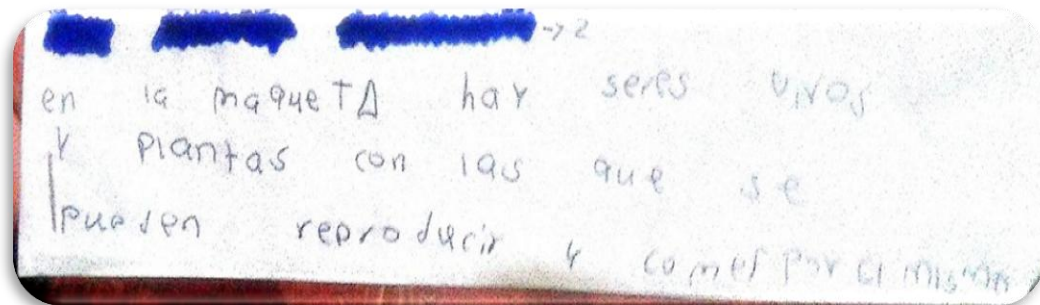 → 2
en la maqueTA hay seres vivos
y plantas con las que se
pueden reproducir y comer por si misma